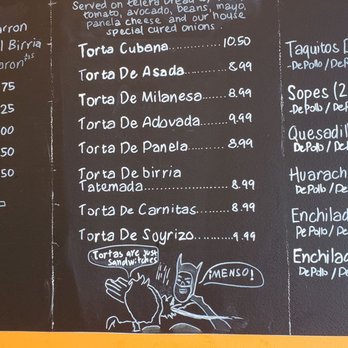 Served on telera bread
tomato, avocado, beans, mayo,
panela cheese and our house
special cured onions.
Torta Cubana.............10.50
Torta De Asada..........8.99
Torta De Milanesa......8.99
Torta De Adovada......9.99
Torta De Panela.........8.99
Torta De birria
Tatemada...................8.99
Torta De Carnitas.......8.99
Torta De Soyrizo........9.99
Tortas are just
sandwitches
¡MENSO!
Birria
75
25
00
50
50
Taquitos
-De Pollo / De
Sopes (2
-De Pollo / De
Quesadil
De Pollo / De
Huarach
De Pollo / De
Enchilad
De Pollo / De
Enchilad
De Pollo / De